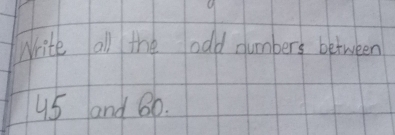 Write all the odd numbers between
45 and 60.